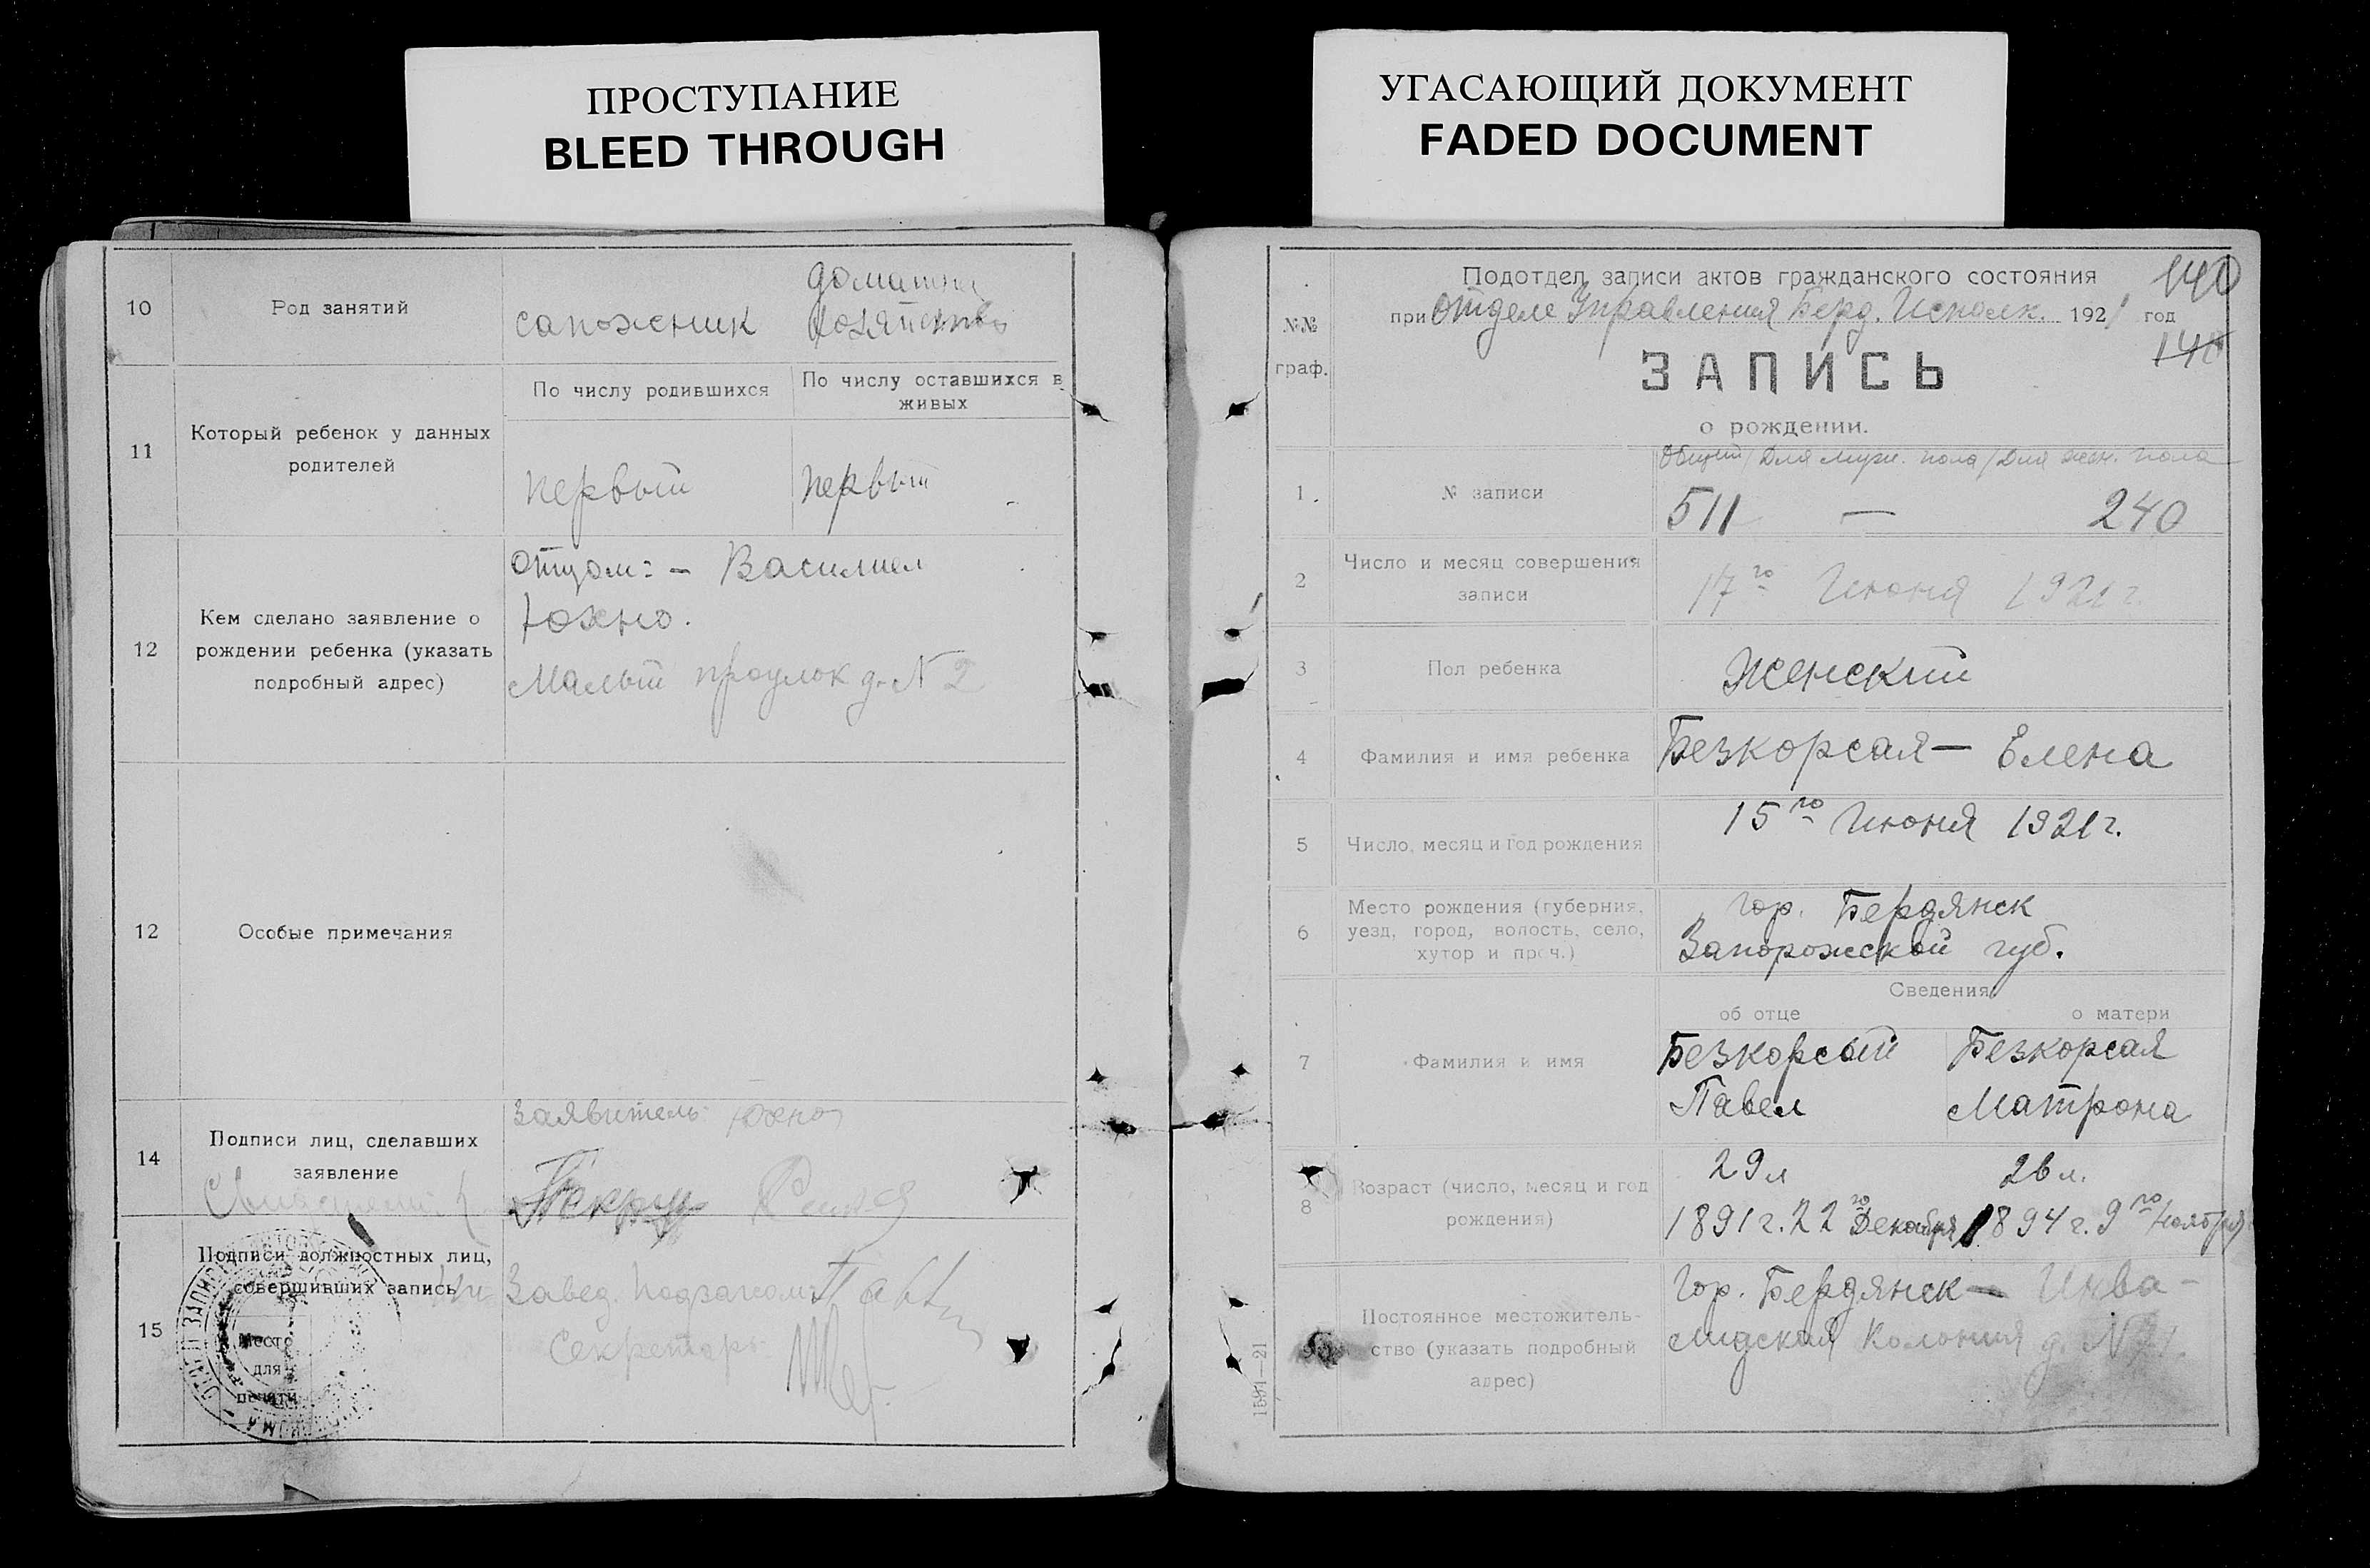 ПРОСТУПАНИЕ
BLEED THROUGH
УГАСАЮЩИЙ ДОКУМЕНТ
FADED DOCUMENT
10
Род занятий
сапожник
домашн
хозяйство
11
Который ребенок у данных
родителей
По числу родившихся
По числу оставшихся в
живых
первый
первый
12
Кем сделано заявление о
рождении ребенка (указать
подробный адрес)
отцом: – Василием
Юхно.
Малый проулок д. N 2
12
Особые примечания
14
Подписи лиц, сделавших
заявление
Заявитель Юхно
15
Подписи должностных лиц,
совершивших запись
Место
для
печати
Завед.
Секретарь
№№
граф.
Подотдел записи актов гражданского состояния
при Отделе Управления Берд. Исполк. 1921 год
140
140
ЗАПИСЬ
о рождении.
1.
№ записи
Общий / Для муж. пола / Для жен. пола
511 — 240
2
Число и месяц совершения
записи
17го Июня 1921 г.
3
Пол ребенка
Женский
4
Фамилия и имя ребенка
Безкорсая — Елена
5
Число, месяц и год рождения
15го Июня 1921 г.
6
Место рождения (губерния,
уезд, город, волость, село,
хутор и проч.)
гор. Бердянск
Запорожской губ.
Сведения
об отце
о матери
7
Фамилия и имя
Безкорсый
Павел
Безкорсая
Матрона
8
Возраст (число, месяц и год
рождения)
29 л
1891 г. 22го Декабря
26 л.
1894 г. 9го Ноября
Постоянное местожитель-
ство (указать подробный
адрес)
Гор. Бердянск — Инва-
лидская Колония д. N 71.
1591—21